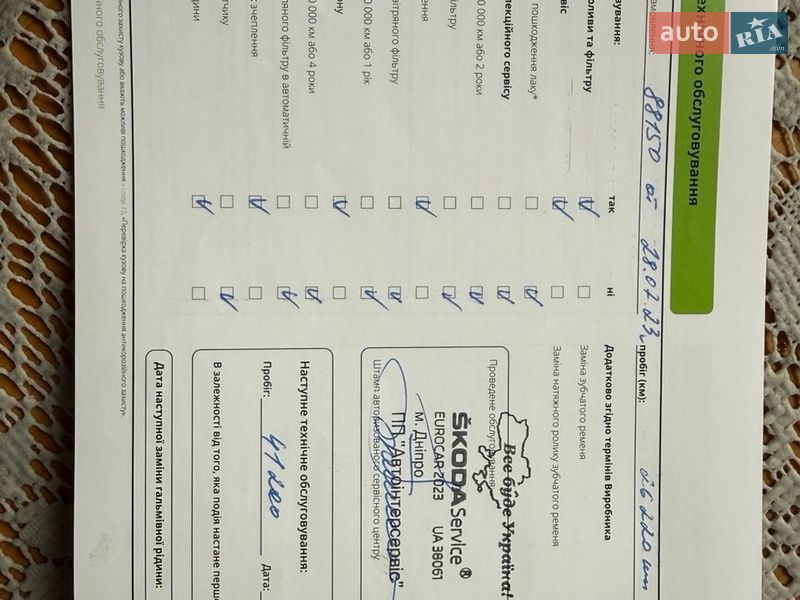 auto RIA.com
ехнічного обслуговування
амовлення: 88150 от 28.07.23 пробіг (км): 26220 км
так
ні
Додатково згідно термінів Виробника
зування:
Заміна зубчатого ременя
оливи та фільтру
Заміна натяжного ролику зубчатого ременя
віс
пошкодження лаку*
лекційного сервісу
000 км або 2 роки
льтру
ення
вітряного фільтру
0 000 км або 1 рік
ону
0 000 км або 4 роки
тряного фільтру в автоматичній
з зчеплення
тчику
дини
Проведене обслуговування
Все буде Україна!
ŠKODA Service ®
EUROCAR 2023 UA 38061
м. Дніпро
ПП "Автоінтерсервіс"
Штамп авторизованого сервісного центру
Наступне технічне обслуговування:
Пробіг: 41200 Дата:
В залежності від того, яка подія настане перш
Дата наступної заміни гальмівної рідини:
ного захисту кузову або вкажіть можливі пошкодження - стор. 15, «Перевірка кузову на пошкодження антикорозійного захисту».
чного обслуговування